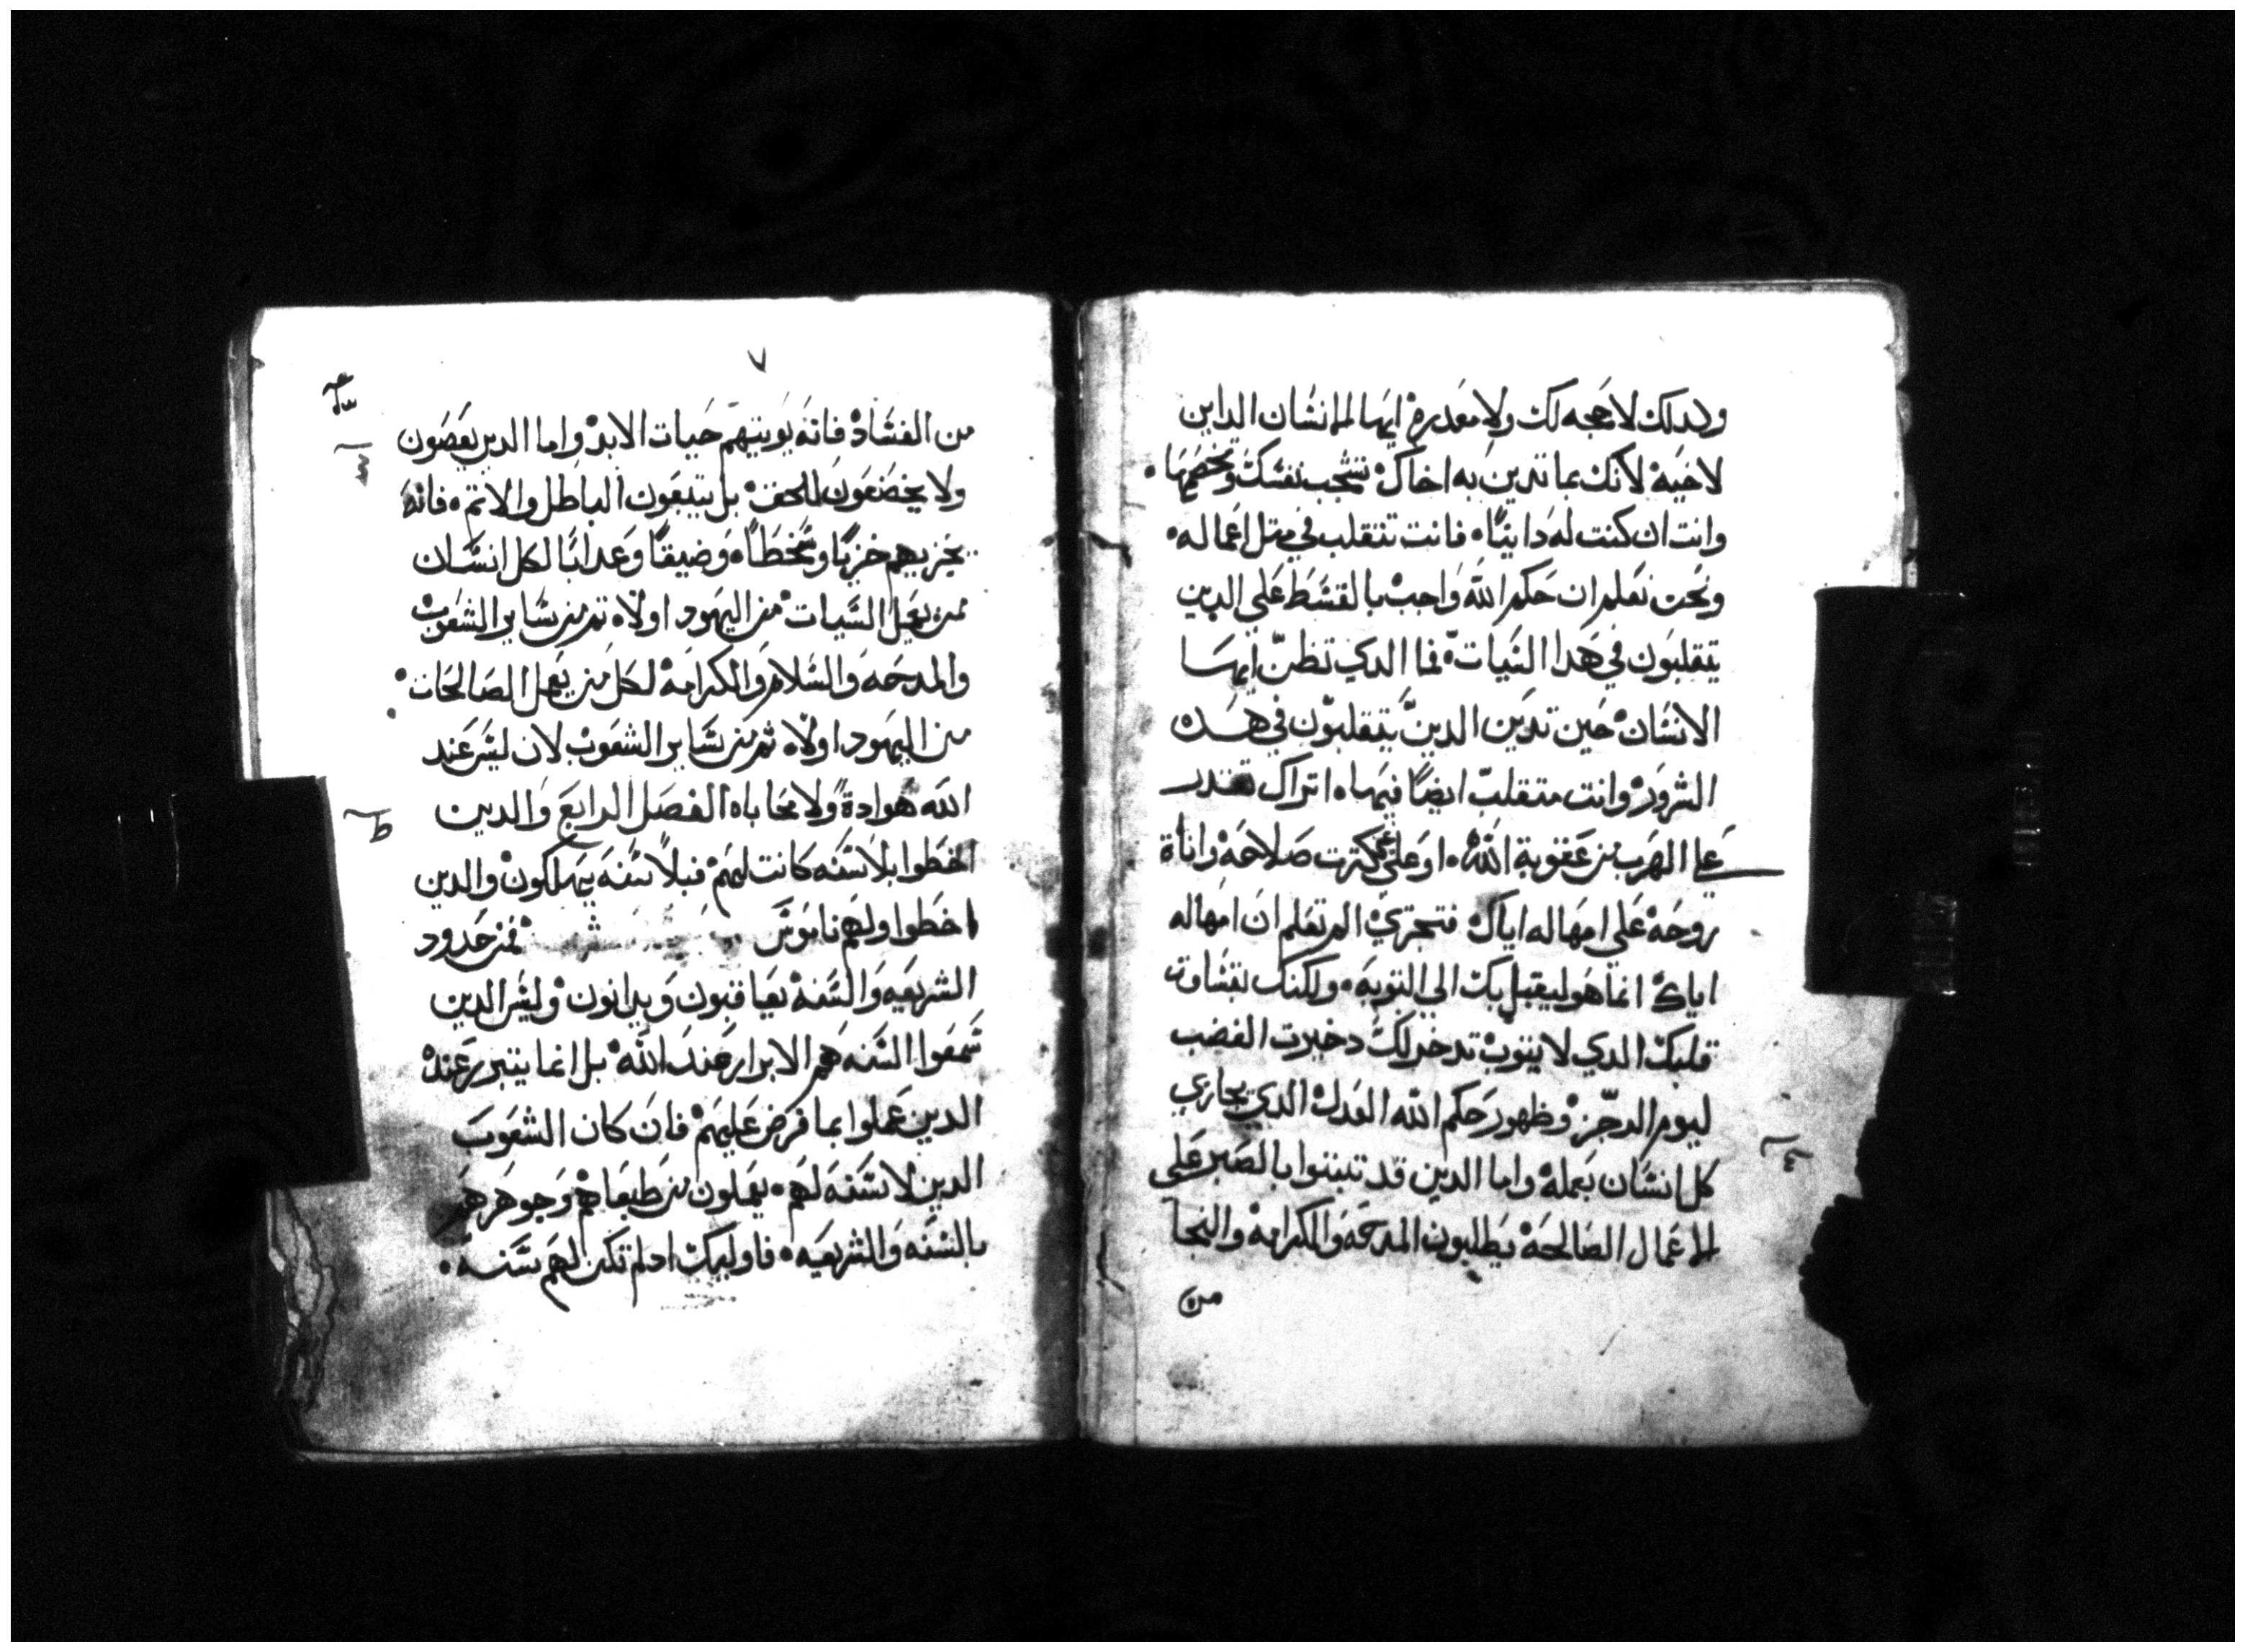 ولدلك لاحجه لك ولا معدره ايها الانسان الداين
لاخيه لانك بما تدين به اخاك تشجب نفسك وتخصمها
وانت ان كنت له داينا فانت تتقلب في مثل اعماله
ونحن نعلم ان حكم الله واجب بالقسط علي الدين
يتقلبون في هدا السيات فما الدي تظن ايها
الانسان حين تدين الدين يتقلبون في هده
الشرور وانت متقلب ايضا فيها اتراك تقدر
علي الهرب من عقوبة الله او علي كترت صلاحه واناة
روحه علي امهاله اياك فتجتري الم تعلم ان امهاله
اياك انما هو ليقبل بك الي التوبه ولكنك بقساوت
قلبك الدي لا يتوب تدخر لك دخيرت الغضب
ليوم الرجز وظهور حكم الله العدل الدي يجازي
كل انسان بعمله واما الدين قد تبتوا بالصبر علي
الاعمال الصالحه يطلبون المدحه والكرامه والنجا
من
٧
من الفساد فانه يوتيهم حيات الابد واما الدين يعصون
ولا يخضعون للحق بل يتبعون الباطل والاتم فانه
يجزيهم خزيا وسخطا وضيقا وعدابا لكل انسان
ممن يعمل السيات من اليهود اولا تم من ساير الشعوب
والمدحه والسلام والكرامه لكل من يعمل الصالحات
من اليهود اولا ثم من ساير الشعوب لان ليس عند
الله هوادة ولا محاباه الفصل الرابع والدين
اخطوا بلا سنه كانت لهم فبلا سنه يهلكون والدين
اخطوا ولهم ناموس فمن حدود
الشريعه والسنه يعاقبون ويدانون وليس الدين
سمعوا السنه هم الابرار عند الله بل انما يتبرر عنده
الدين عملوا بما فرض عليهم فان كان الشعوب
الدين لا سنه لهم يعملون من طباعهم وجوهرهم
بالسنه والشريعه فاوليك ادلم تكن لهم سنه